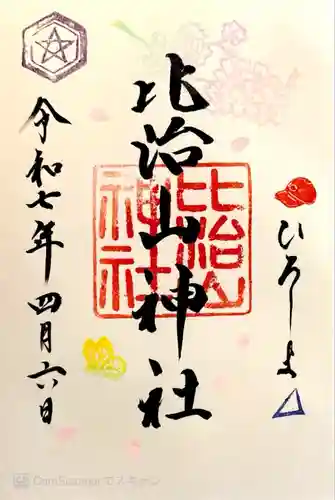 ひろしま
比治山神社
比治山
神社
令和七年 四月六日
CamScannerでスキャン